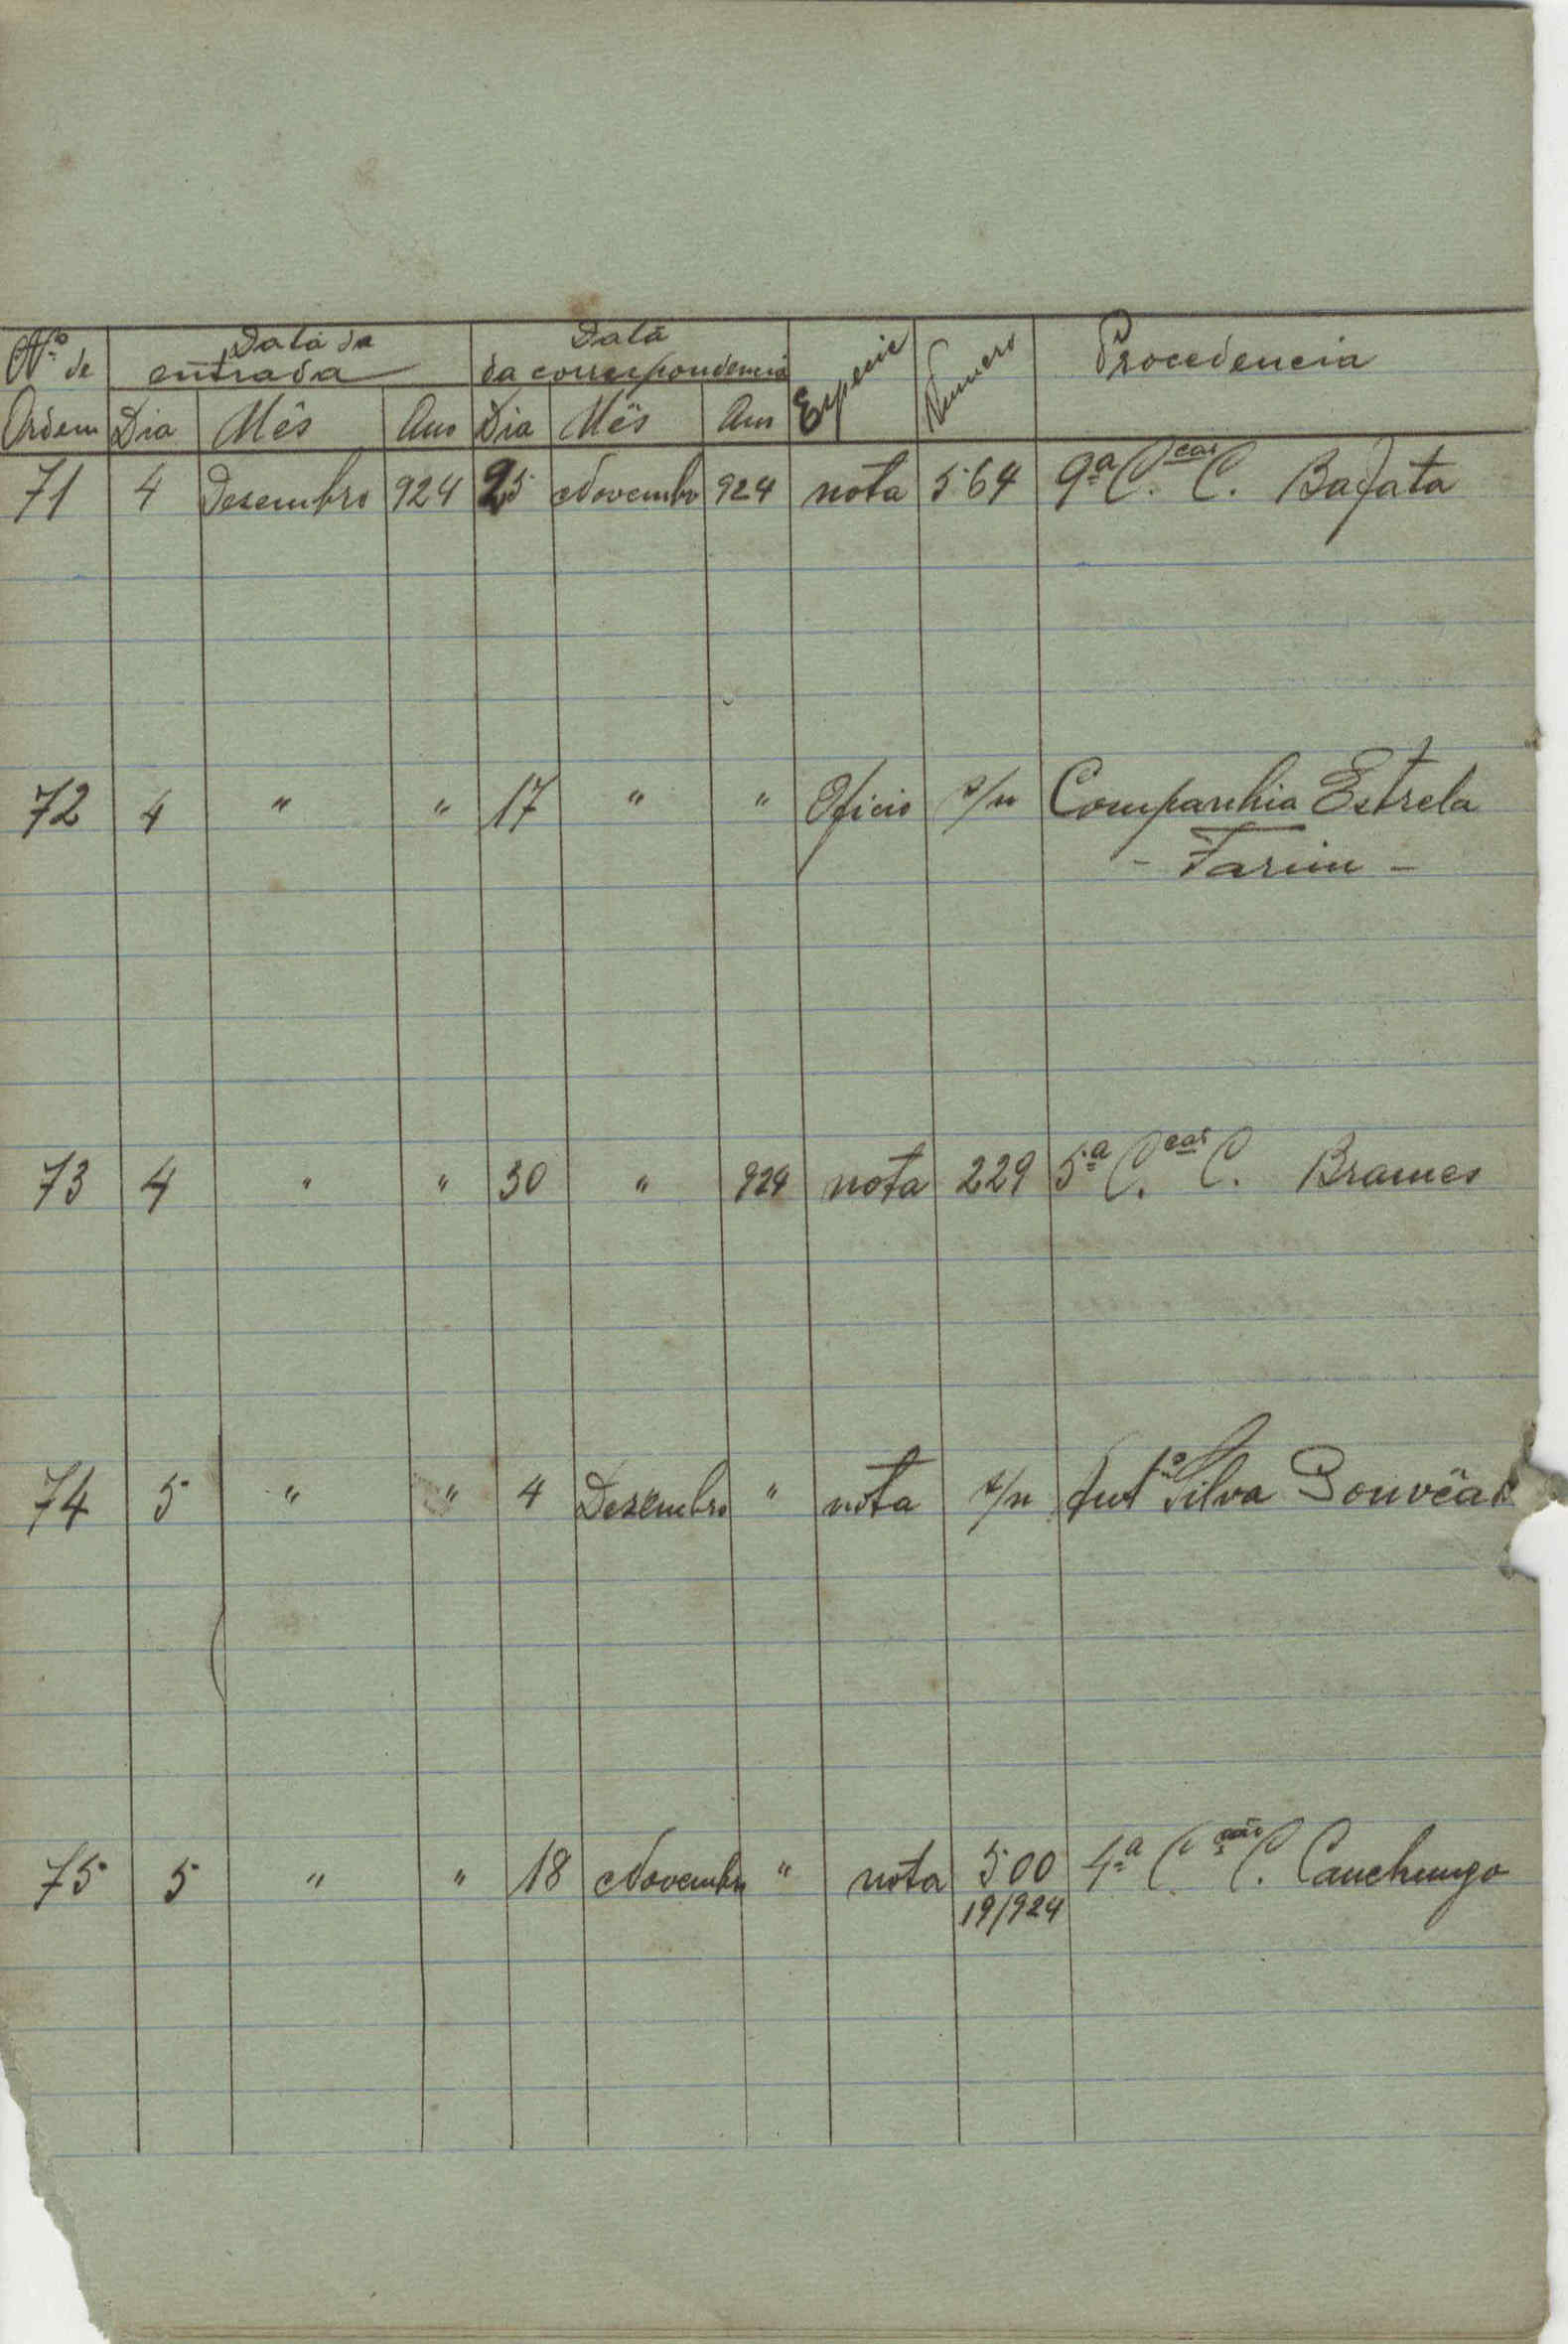 Nº de Data da entrada Data da correspondencia Especie Numero Procedencia
Ordem Dia Mês Ano Dia Mês Ano
71 4 Desembro 924 25 Novembro 924 nota 564 9ª C. C. Bafata
72 4 " " 17 " " Oficio s/n Companhia Estrela
- Farim -
73 4 " " 30 " 924 nota 229 5ª C. C. Brames
74 5 " " 4 Desembro " nota s/n Antº Silva Gouvêa
75 5 " " 18 Novembro " nota 500 4ª C. C. Canchungo
19/924